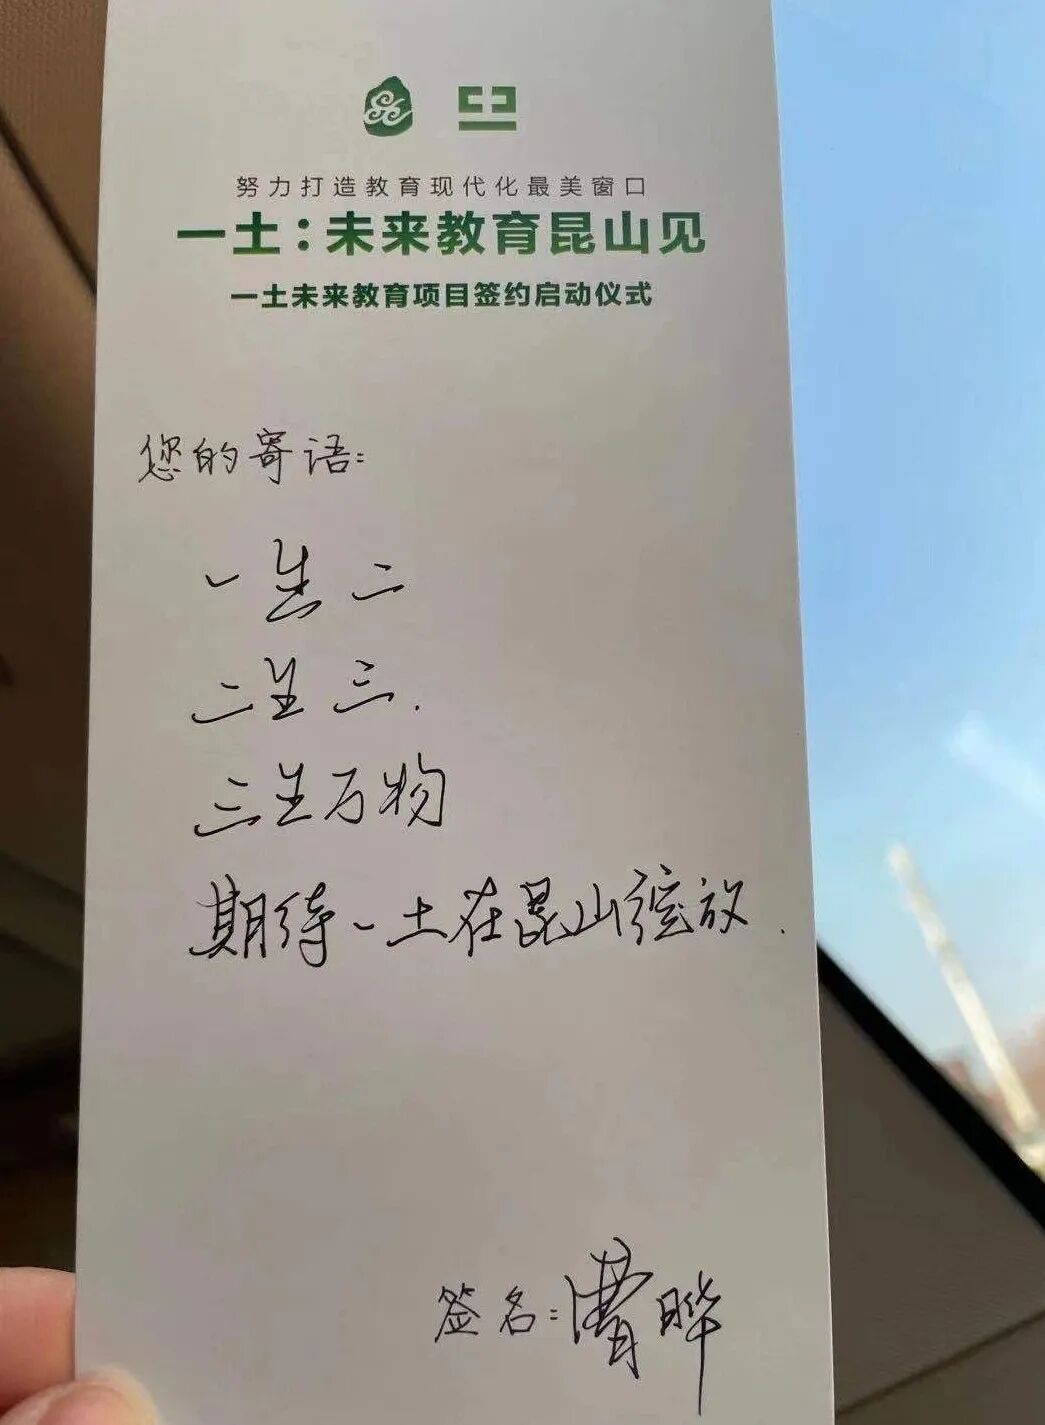 努力打造教育现代化最美窗口
一土：未来教育昆山见
一土未来教育项目签约启动仪式
您的寄语：
一生二
二生三.
三生万物
期待一土在昆山绽放.
签名：曹晔